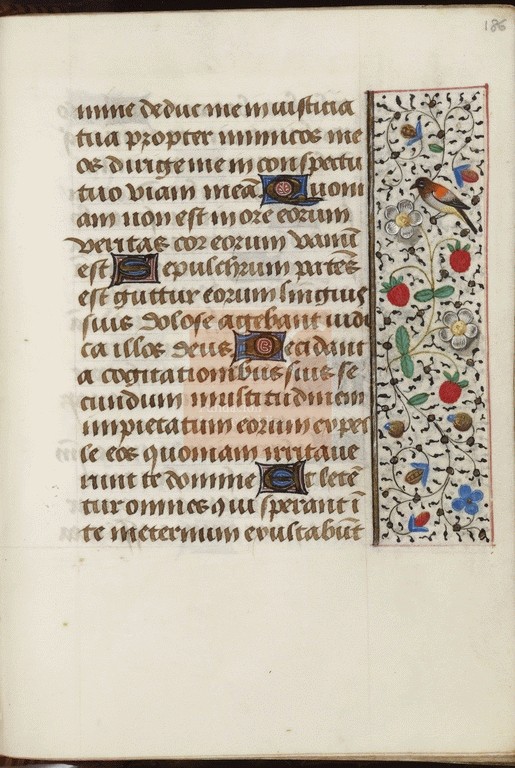 186
mine deduc me in iusticia
tua propter inimicos me
os dirige me in conspectu
tuo viam meā Quoni
am non est in ore eorum
veritas cor eorum vanū
est Sepulchrum patēs
est guttur eorum linguis
suis dolose agebant iudi
ca illos deus Decidant
a cogitationibus suis se
cundum multitudinem
impietatum eorum expel
le eos quoniam irritaue
runt te domine Et letē
tur omnes qui sperant ī
te in eternum exultabūt